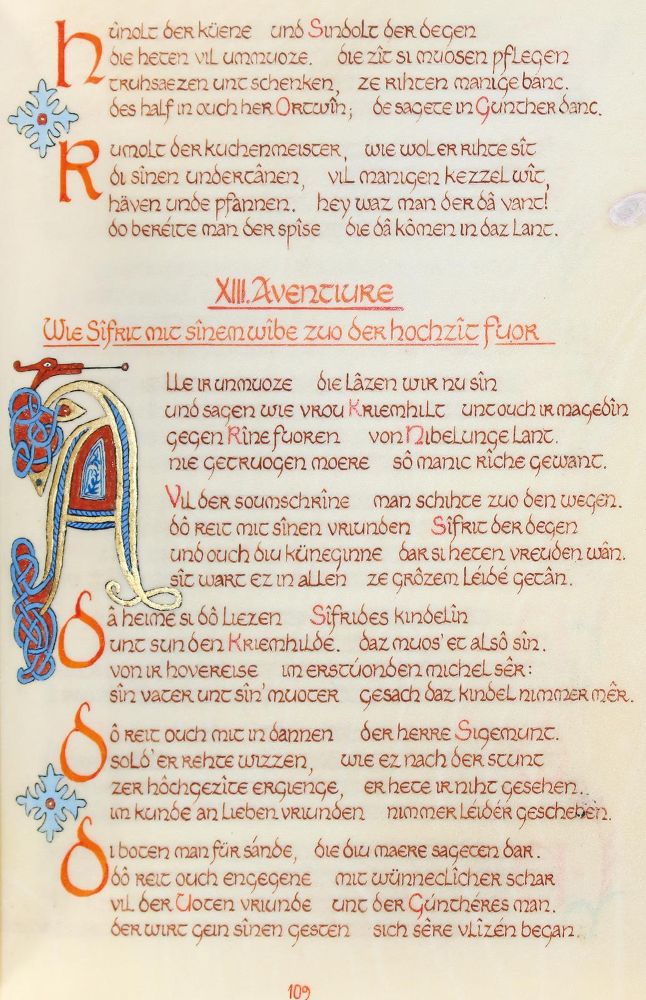 Hûnolt der küene und Sindolt der degen
die heten vil unmuoze. die zît si muosen pflegen
truhsaezen unt schenken, ze rihten manige banc.
des half in ouch her Ortwîn; de sagete in Gunther danc.
Rumolt der kuchenmeister, wie wol er rihte sît
di sînen undertânen, vil manigen kezzel wît,
häven unde pfannen. hey waz man der dâ vant!
do beréite man der spîse die dâ kômen in daz lant.
XIII. Aventiure
Wie Sîfrit mit sînem wîbe zuo der hochzît fuor
Alle ir unmuoze die lâzen wir nu sîn
und sagen wie vrou Kriemhilt unt ouch ir magedîn
gegen Rîne fuoren von Nibelunge lant.
nie getruogen moere sô manic rîche gewant.
Vil der soumschrîne man schihte zuo den wegen.
dô reit mit sînen vriunden Sîfrit der degen
und ouch diu küneginne dar si heten vreuden wân.
sît wart ez in allen ze grôzem léidé getân.
dâ heime si dô liezen Sîfrides kindelîn
unt sun den Kriemhilde. daz muos' et alsô sîn.
von ir hovereise im erstúonden michel sêr:
sîn vater unt sîn' muoter gesach daz kindel nimmer mêr.
dô reit ouch mit in dannen der herre Sigemunt.
sold' er rehte wizzen, wie ez nach der stunt
zer hôchgezîte ergienge, er hete ir niht gesehen.
im kunde an lieben vriunden nimmer léidér geschehen.
di boten man für sánde, die diu maere sageten dar.
dô reit ouch engegene mit wünneclîcher schar
vil der Uoten vriunde unt der Gúnthéres man.
der wirt gein sînen gesten sich sêre vlîzén began.
109